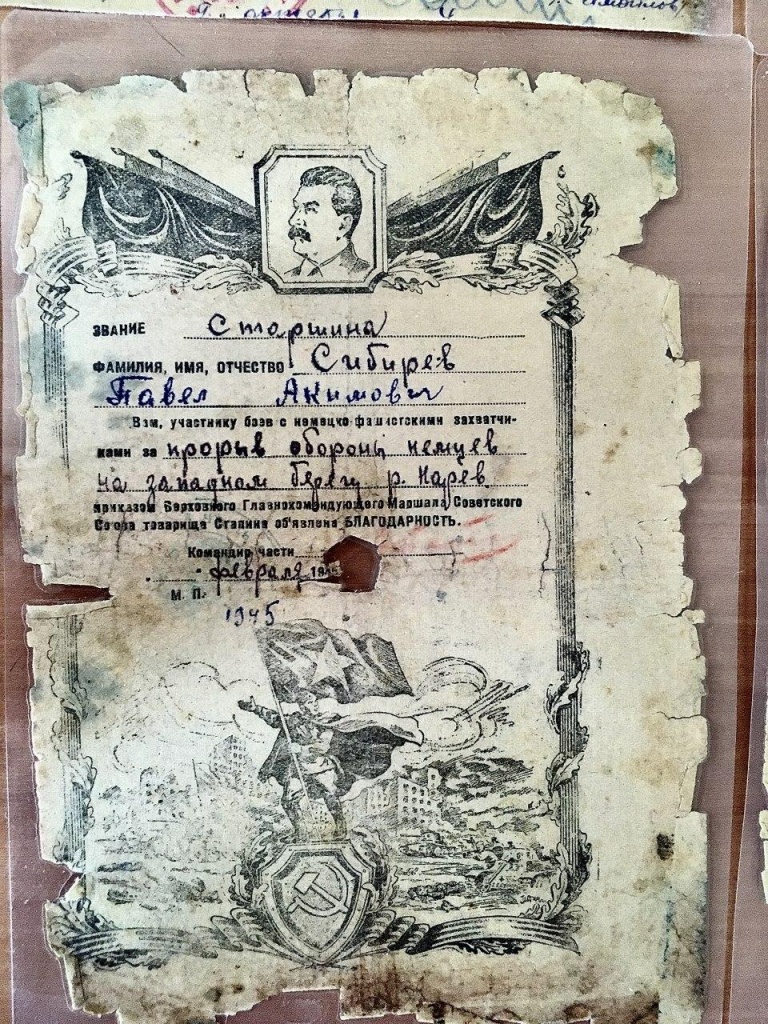 ЗВАНИЕ Старшина
ФАМИЛИЯ, ИМЯ, ОТЧЕСТВО Сибирев
Павел Акимович
Вам, участнику боев с немецко-фашистскими захватчи-
ками за прорыв обороны немцев
на западном берегу р. Нарев
приказом Верховного Главнокомандующего Маршала Советского
Союза товарища Сталина об'явлена БЛАГОДАРНОСТЬ.
Командир части
февраля 194
М. П.
1945